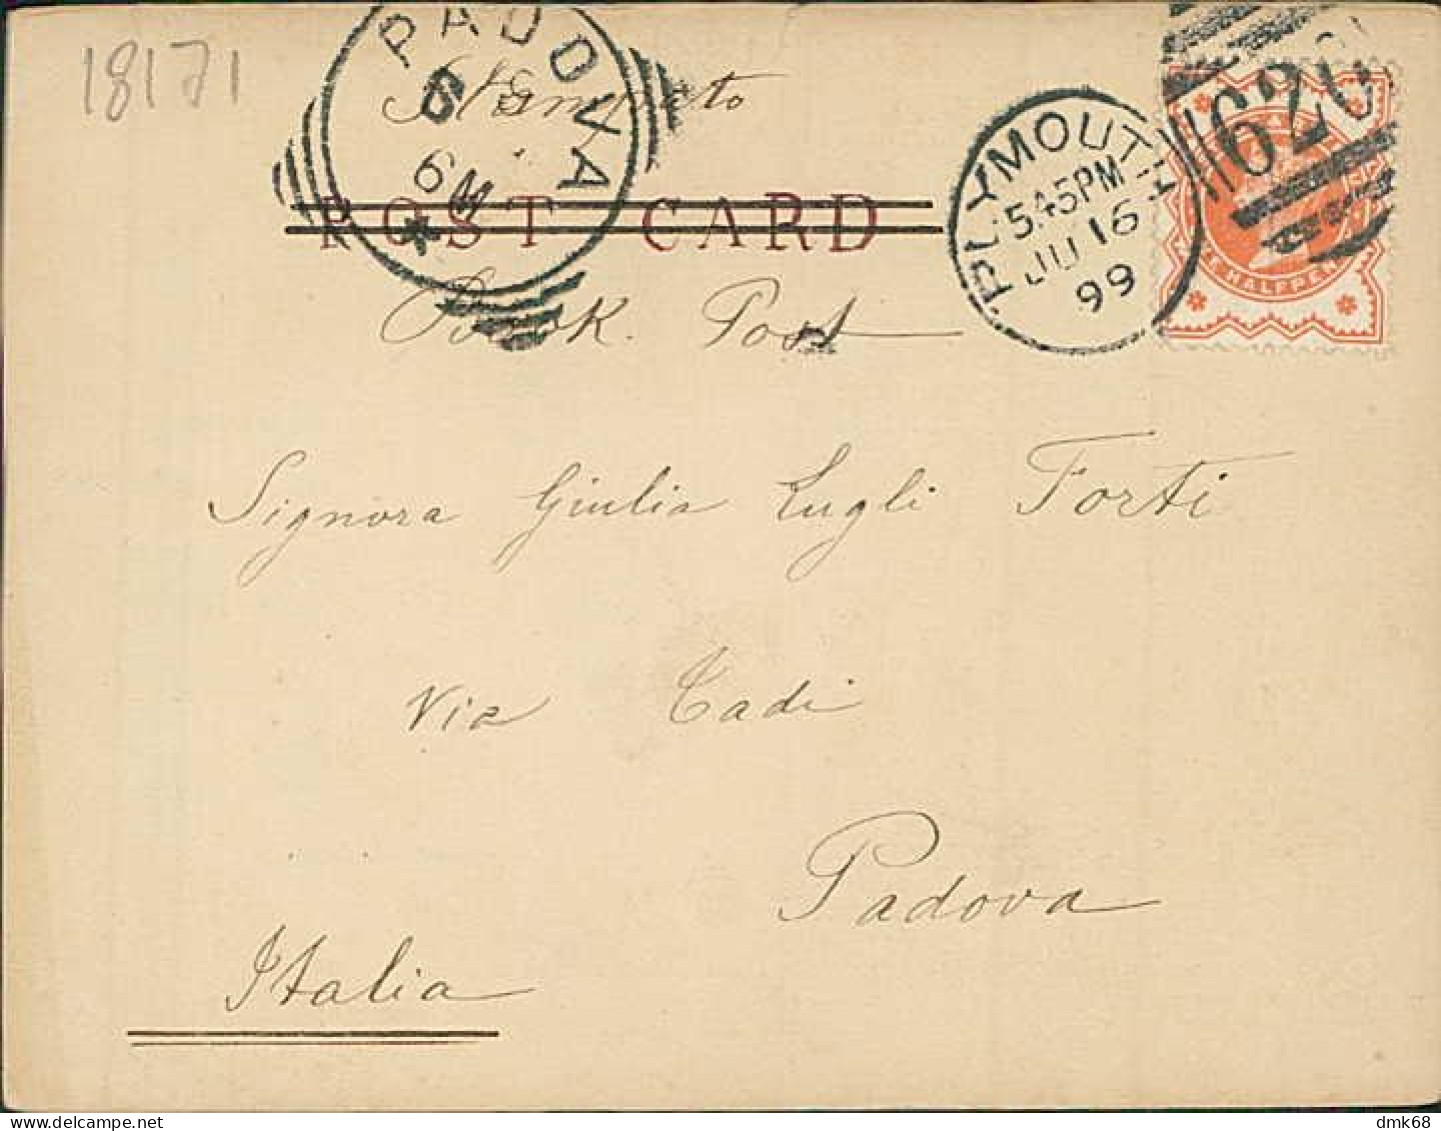 18171
PADOVA
6 M
Stampato
POST CARD
Book Post
PLYMOUTH
5.45PM
JU 16
99
620
HALFPEN
Signora Giulia Lugli Forti
Via Tadi
Padova
Italia
dmk68